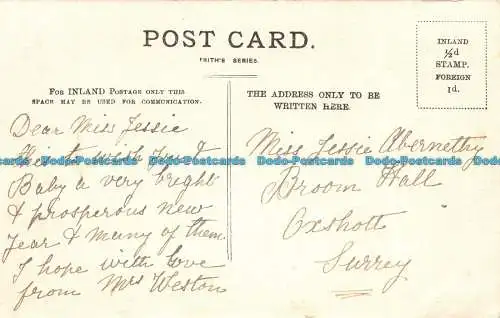 POST CARD.
FRITH'S SERIES.
INLAND
½d
STAMP.
FOREIGN
1d.
FOR INLAND POSTAGE ONLY THIS
SPACE MAY BE USED FOR COMMUNICATION.
THE ADDRESS ONLY TO BE
WRITTEN HERE.
Dear Miss Jessie
wish you &
Baby a very bright
& prosperous new
Year & many of them.
I hope with love
from Mrs Weston
Miss Jessie Abernethy
Broom Hall
Oxshott
Surrey
Dodo-Postcards Dodo-Postcards Dodo-Postcards Dodo-Postcards